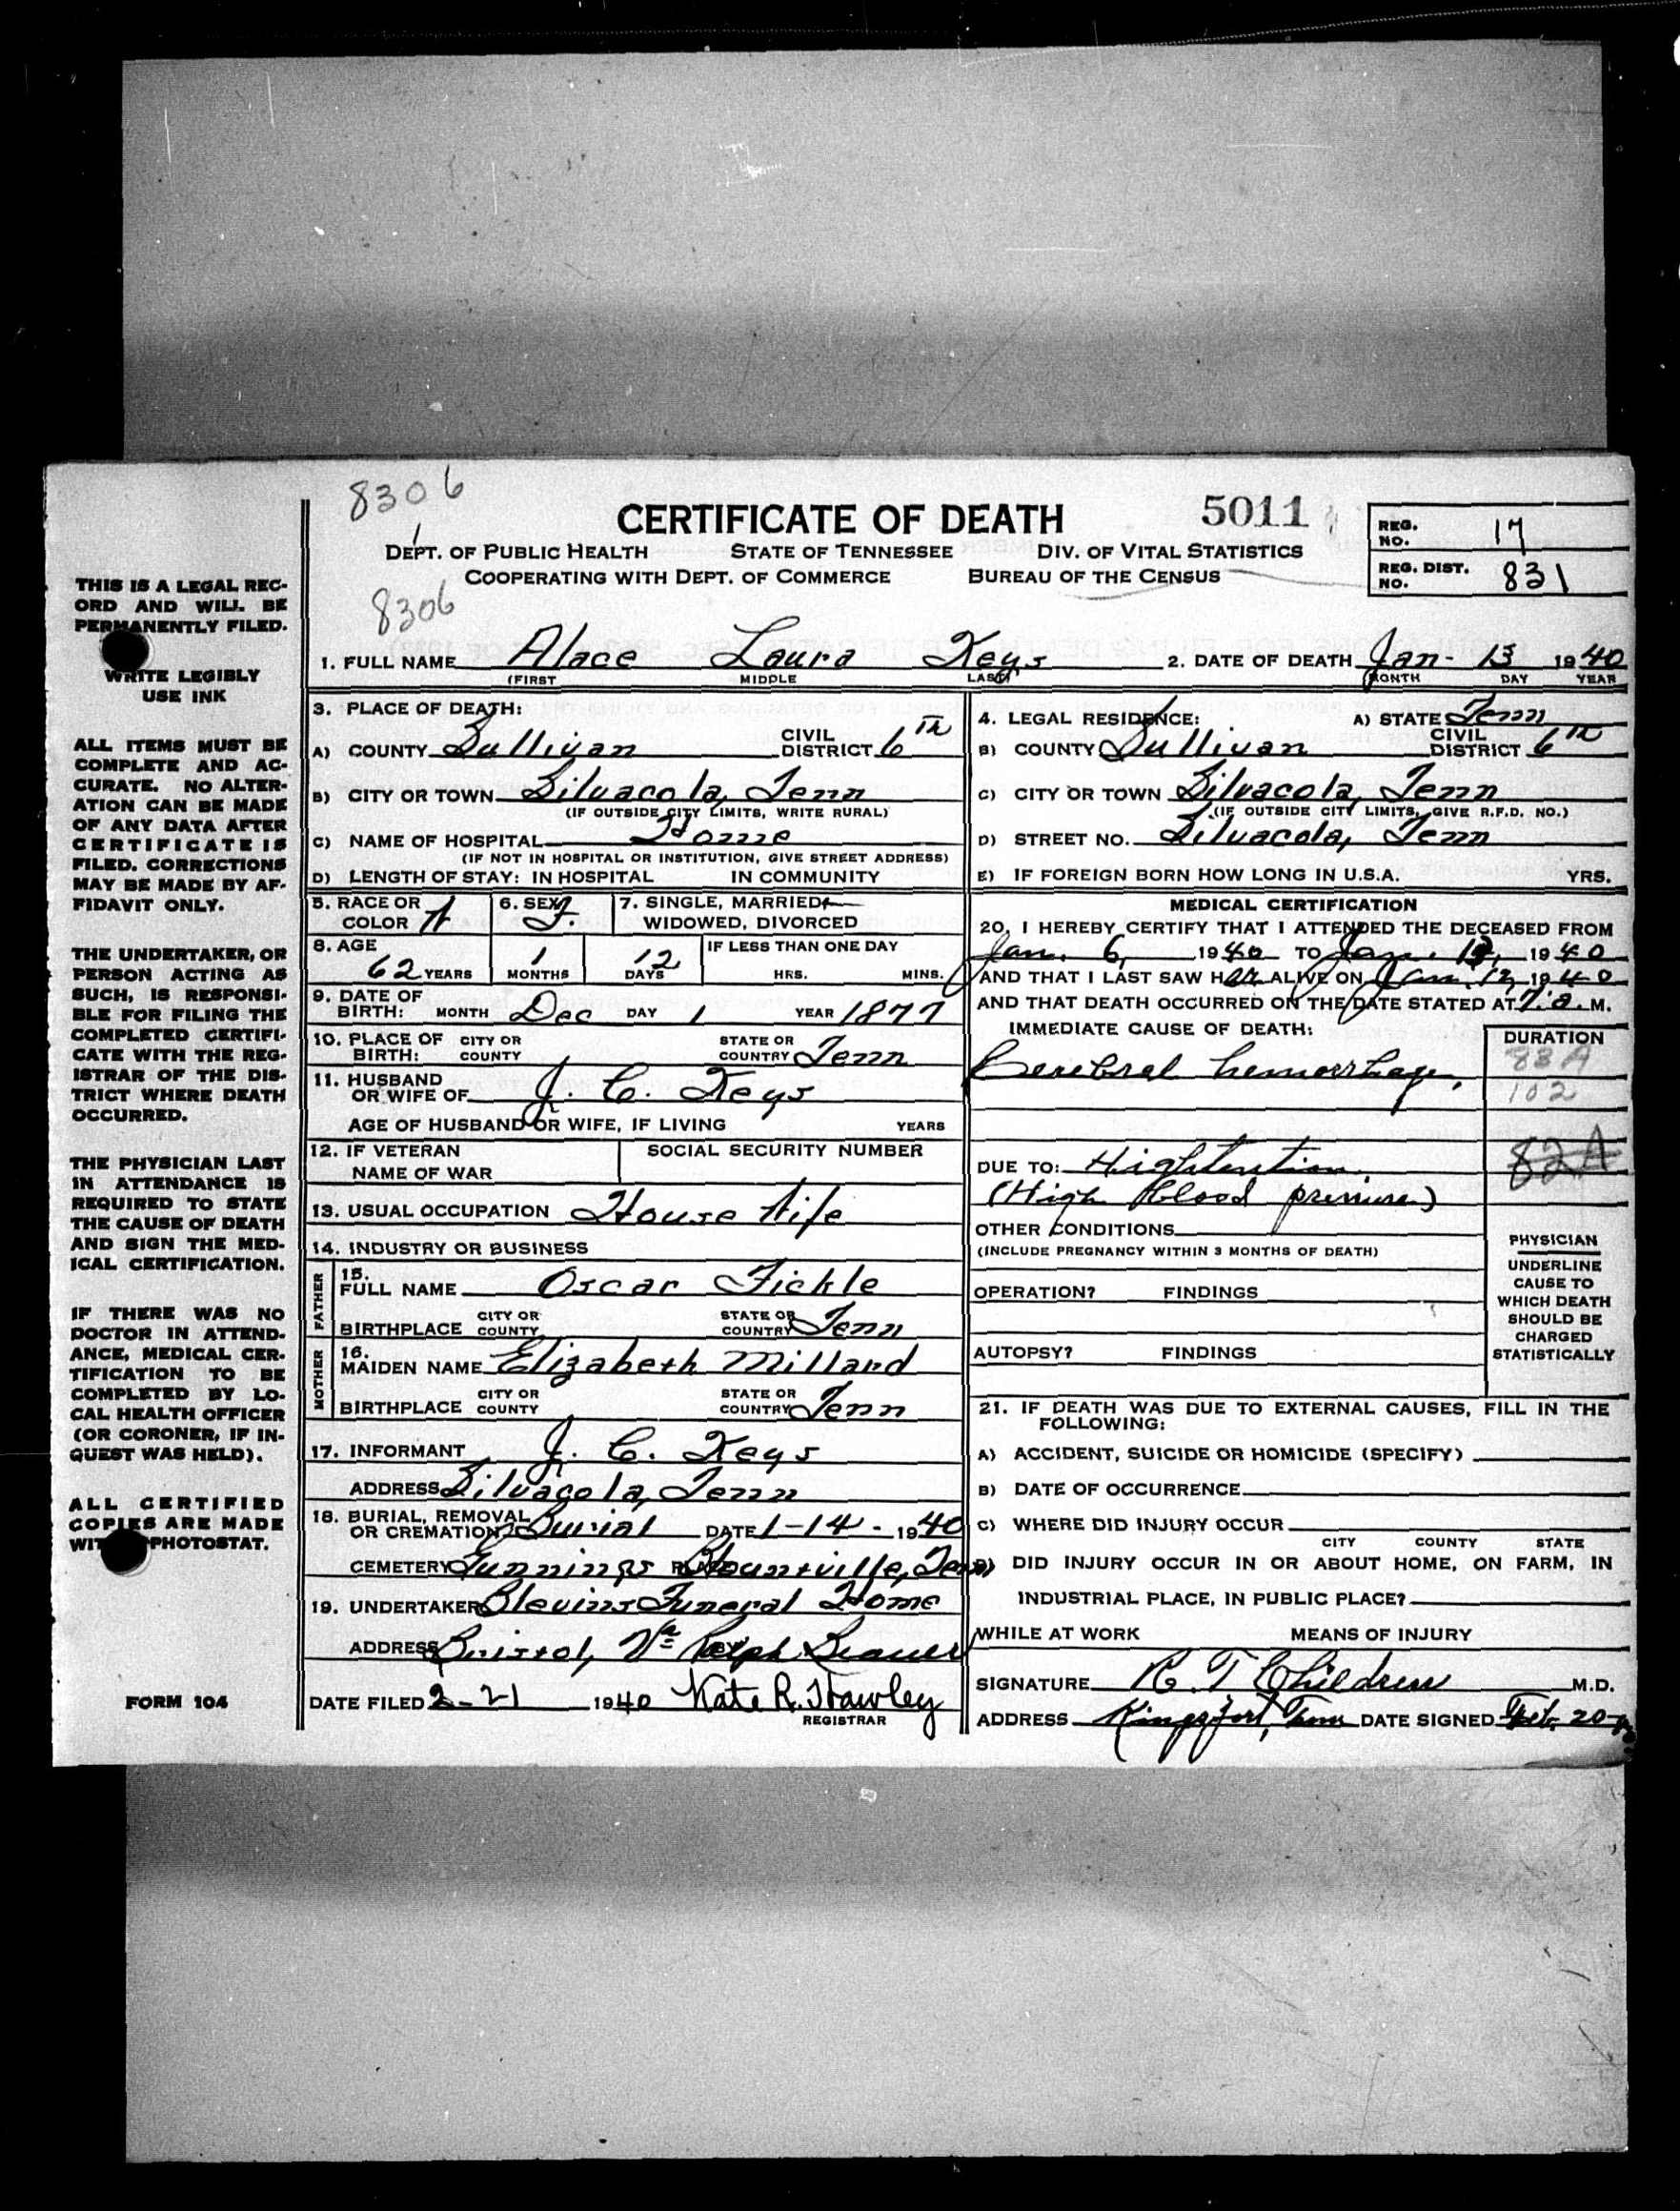 8306
CERTIFICATE OF DEATH 5011
REG. NO. 17
DEPT. OF PUBLIC HEALTH STATE OF TENNESSEE DIV. OF VITAL STATISTICS
COOPERATING WITH DEPT. OF COMMERCE BUREAU OF THE CENSUS
REG. DIST. NO. 831
8306
1. FULL NAME Alace Laura Keys 2. DATE OF DEATH Jan- 13 1940
(FIRST MIDDLE LAST) (MONTH DAY YEAR
3. PLACE OF DEATH:
A) COUNTY Sullivan CIVIL DISTRICT 6th
B) CITY OR TOWN Silvacola, Tenn
(IF OUTSIDE CITY LIMITS, WRITE RURAL)
C) NAME OF HOSPITAL Home
(IF NOT IN HOSPITAL OR INSTITUTION, GIVE STREET ADDRESS)
D) LENGTH OF STAY: IN HOSPITAL IN COMMUNITY
4. LEGAL RESIDENCE: A) STATE Tenn
B) COUNTY Sullivan CIVIL DISTRICT 6th
C) CITY OR TOWN Silvacola, Tenn
(IF OUTSIDE CITY LIMITS, GIVE R.F.D. NO.)
D) STREET NO. Silvacola, Tenn
E) IF FOREIGN BORN HOW LONG IN U.S.A. YRS.
5. RACE OR COLOR W 6. SEX F. 7. SINGLE, MARRIED, WIDOWED, DIVORCED
8. AGE 62 YEARS 1 MONTHS 12 DAYS IF LESS THAN ONE DAY HRS. MINS.
9. DATE OF BIRTH: MONTH Dec DAY 1 YEAR 1877
10. PLACE OF BIRTH: CITY OR COUNTY STATE OR COUNTRY Tenn
11. HUSBAND OR WIFE OF J. C. Keys
AGE OF HUSBAND OR WIFE, IF LIVING YEARS
12. IF VETERAN NAME OF WAR SOCIAL SECURITY NUMBER
13. USUAL OCCUPATION House Wife
14. INDUSTRY OR BUSINESS
FATHER
15. FULL NAME Oscar Fickle
BIRTHPLACE CITY OR COUNTY STATE OR COUNTRY Tenn
MOTHER
16. MAIDEN NAME Elizabeth Millard
BIRTHPLACE CITY OR COUNTY STATE OR COUNTRY Tenn
17. INFORMANT J. C. Keys
ADDRESS Silvacola, Tenn
18. BURIAL, REMOVAL OR CREMATION? Burial DATE 1-14-1940
CEMETERY Gunnings PLACE Blountville, Tenn
19. UNDERTAKER Blevins Funeral Home
ADDRESS Bristol, Va BY Ralph
DATE FILED 2-21 1940 Kate R. Hawley
REGISTRAR
MEDICAL CERTIFICATION
20. I HEREBY CERTIFY THAT I ATTENDED THE DECEASED FROM
Jan. 6, 1940 TO Jan. 1940
AND THAT I LAST SAW HER ALIVE ON Jan. 12, 1940
AND THAT DEATH OCCURRED ON THE DATE STATED AT 7:a.M.
IMMEDIATE CAUSE OF DEATH: DURATION
Cerebral hemorrhage, 83A
102
DUE TO: Hightention 82A
(High blood pressure)
OTHER CONDITIONS
(INCLUDE PREGNANCY WITHIN 3 MONTHS OF DEATH)
OPERATION? FINDINGS
AUTOPSY? FINDINGS
PHYSICIAN
UNDERLINE
CAUSE TO
WHICH DEATH
SHOULD BE
CHARGED
STATISTICALLY
21. IF DEATH WAS DUE TO EXTERNAL CAUSES, FILL IN THE
FOLLOWING:
A) ACCIDENT, SUICIDE OR HOMICIDE (SPECIFY)
B) DATE OF OCCURRENCE
C) WHERE DID INJURY OCCUR
CITY COUNTY STATE
D) DID INJURY OCCUR IN OR ABOUT HOME, ON FARM, IN
INDUSTRIAL PLACE, IN PUBLIC PLACE?
WHILE AT WORK MEANS OF INJURY
SIGNATURE R. T. Childress M.D.
ADDRESS Kingsport, Tenn DATE SIGNED Feb. 20
THIS IS A LEGAL REC-
ORD AND WILL BE
PERMANENTLY FILED.
WRITE LEGIBLY
USE INK
ALL ITEMS MUST BE
COMPLETE AND AC-
CURATE. NO ALTER-
ATION CAN BE MADE
OF ANY DATA AFTER
CERTIFICATE IS
FILED. CORRECTIONS
MAY BE MADE BY AF-
FIDAVIT ONLY.
THE UNDERTAKER, OR
PERSON ACTING AS
SUCH, IS RESPONSI-
BLE FOR FILING THE
COMPLETED CERTIFI-
CATE WITH THE REG-
ISTRAR OF THE DIS-
TRICT WHERE DEATH
OCCURRED.
THE PHYSICIAN LAST
IN ATTENDANCE IS
REQUIRED TO STATE
THE CAUSE OF DEATH
AND SIGN THE MED-
ICAL CERTIFICATION.
IF THERE WAS NO
DOCTOR IN ATTEND-
ANCE, MEDICAL CER-
TIFICATION TO BE
COMPLETED BY LO-
CAL HEALTH OFFICER
(OR CORONER, IF IN-
QUEST WAS HELD).
ALL CERTIFIED
COPIES ARE MADE
WITH PHOTOSTAT.
FORM 104